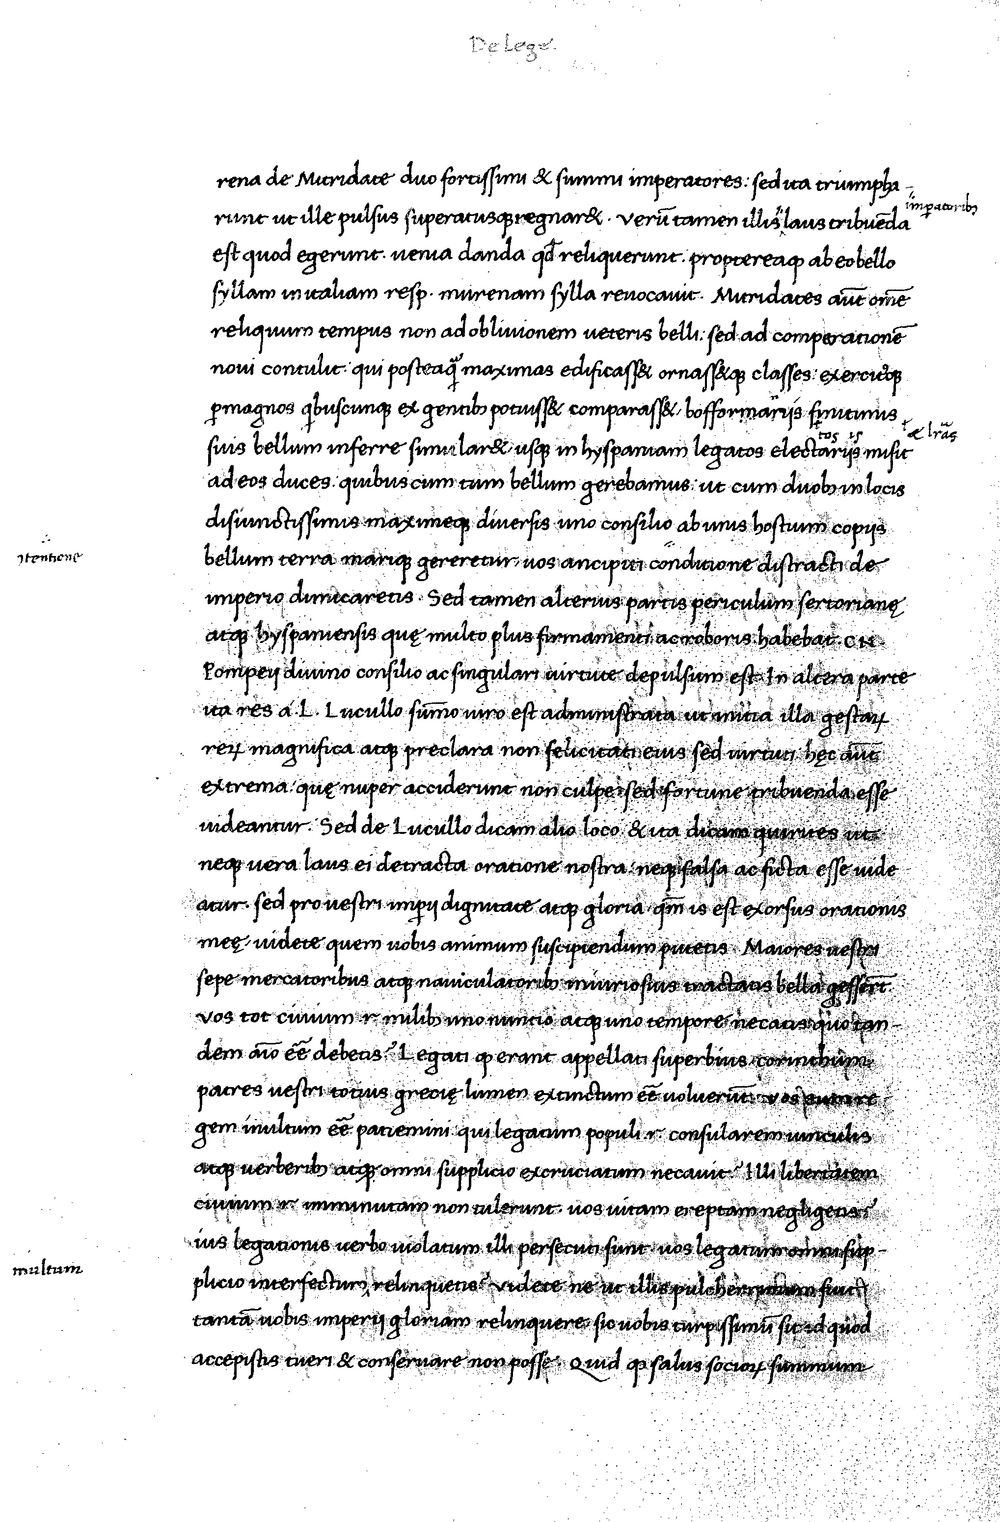 De Lege.
rena de Mitridate duo fortissimi & summi imperatores: sed ita triumpha-
runt ut ille pulsus superatusqꝫ regnar&. verū tamen illis laus tribuēda
imꝑatoribꝫ
est quod egerunt. uenia danda qđ reliquerunt. proptereaqꝫ ab eo bello
syllam in italiam resp. murenam sylla reuocauit. Mitridates aūt omē
reliquum tempus non ad obliuionem ueteris belli: sed ad comperationē
noui contulit: qui posteaꝗ̃ maximas edificass& ornass&qꝫ classes: exercitꝰqꝫ
ꝑmagnos ꝗbuscunqꝫ ex gentibꝫ potuiss& comparass&, bofformariis finitimis
& lr̃as
tos is
suis bellum inferre simular&, usqꝫ in hyspaniam legatos electariis misit
ad eos duces. quibuscum tum bellum gerebamus: ut cum duobꝫ in locis
disiunctissimis maximeqꝫ diuersis uno consilio ab unis hostium copiis
ıtentione
bellum terra mariqꝫ gereretur, uos ancipiti conditione distracti de
imperio dimicaretis. Sed tamen alterius partis periculum sertorianę
atqꝫ hyspaniensis quę multo plus firmamenti ac roboris habebat. CN.
Pompeij diuino consilio ac singulari uirtute depulsum est. In altera parte
ita res a .L. Lucullo sūmo uiro est administrata ut initia illa gestaꝝ
reꝝ magnifica atqꝫ preclara non felicitati eius sed uirtuti. hęc aūt
extrema: quę nuper acciderunt non culpe: sed fortune tribuenda esse
uideantur. Sed de Lucullo dicam alio loco. & ita dicam quirites ut
neqꝫ uera laus ei detracta oratione nostra: neqꝫ falsa ac ficta esse uide
atur. sed pro uestri imperij dignitate atqꝫ gloria. qm̄ is est exorsus orationis
meę, uidete quem uobis animum suscipiendum putetis. Maiores uestri
sepe mercatoribus atqꝫ nauiculatoribꝫ iniuriosius tractatis bella gesserūt
vos tot ciuium .r. milibꝫ uno nuncio atqꝫ uno tempore necatis quo tan-
dem aīo eē debetis? Legati qꝫ erant appellati superbius corinthum
patres uestri totius grecię lumen extinctum eē uoluerūt. vos eum re
gem inultum eē patiemini qui legatum populi .r. consularem uinculis
atqꝫ uerberibꝫ atqꝫ omni supplicio excruciatum necauit? Illi libertatem
ciuium .r. imminutam non tulerunt. uos uitam ereptam negligetis?
ius legationis uerbo uiolatum illi persecuti sunt. uos legatum omni sup-
multum
plicio interfectum relinquetis? Videte ne ut illis pulcherrimum fuit
tantā uobis imperij gloriam relinquere: sic uobis turpissimū sit id quod
accepistis tueri & conseruare non posse. Quid qꝫ salus socioꝝ summum